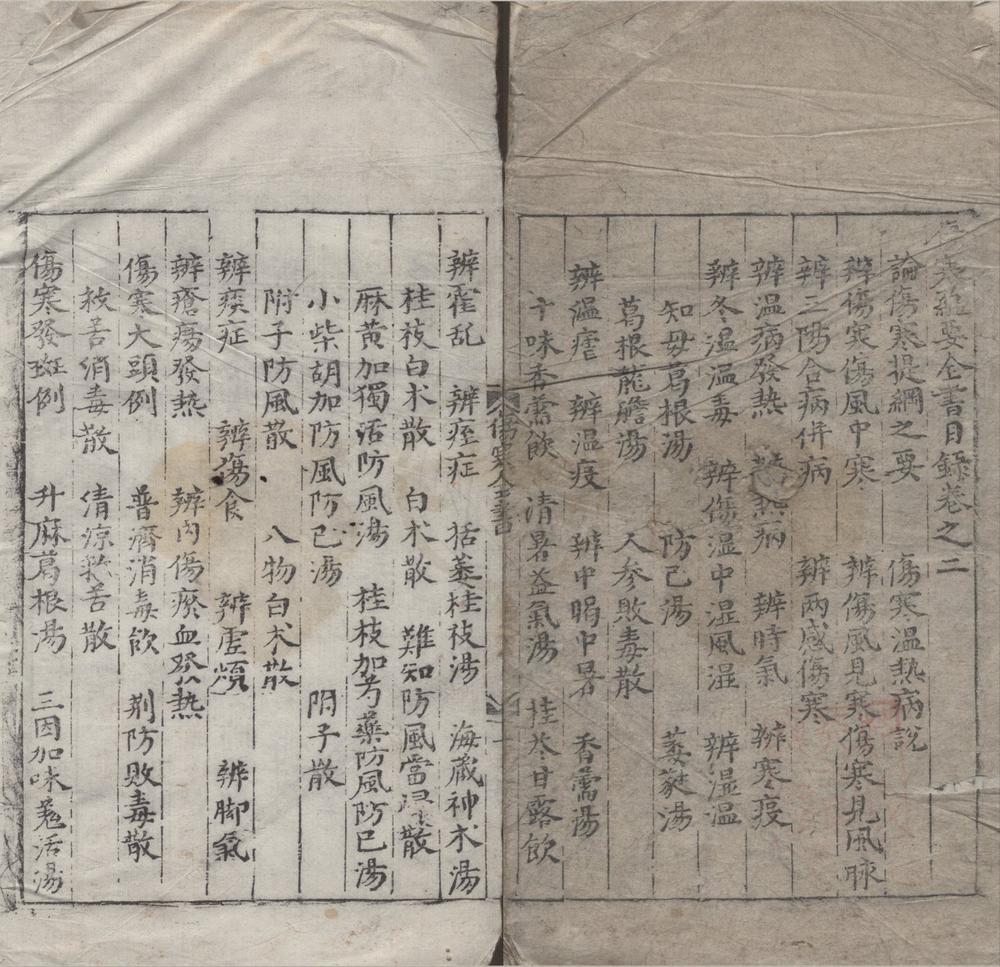 傷寒蘊要全書目錄卷之二
論傷寒提綱之要 傷寒温熱病説
辨傷寒傷風中寒 辨傷風見寒傷寒見風脉
辨三陽合病併病 辨兩感傷寒
辨温病發熱 辨熱病 辨時氣 辨寒疫
辨冬温温毒 辨傷湿中湿風湿 辨湿温
知母葛根湯 防己湯 萎蕤湯
葛根龍膽湯 人参敗毒散
辨温瘧 辨温疫 辨中暍中暑 香薷湯
十味香薷飲 清暑益氣湯 桂苓甘露飲
傷寒全書
辨霍乱 辨痓症 括蔞桂枝湯 海蔵神术湯
桂枝白术散 白术散 難知防風當㱕散
麻黄加獨活防風湯 桂枝加芍藥防風防已湯
小柴胡加防風防已湯 附子散
附子防風散 八物白术散
辨痰症 辨傷食 辨虚煩 辨脚氣
辨瘡瘍發熱 辨内傷瘀血發熱
傷寒大頭例 普濟消毒飲 荆防敗毒散
救苦消毒散 清涼救苦散
傷寒發斑例 升麻葛根湯 三因加味羗活湯